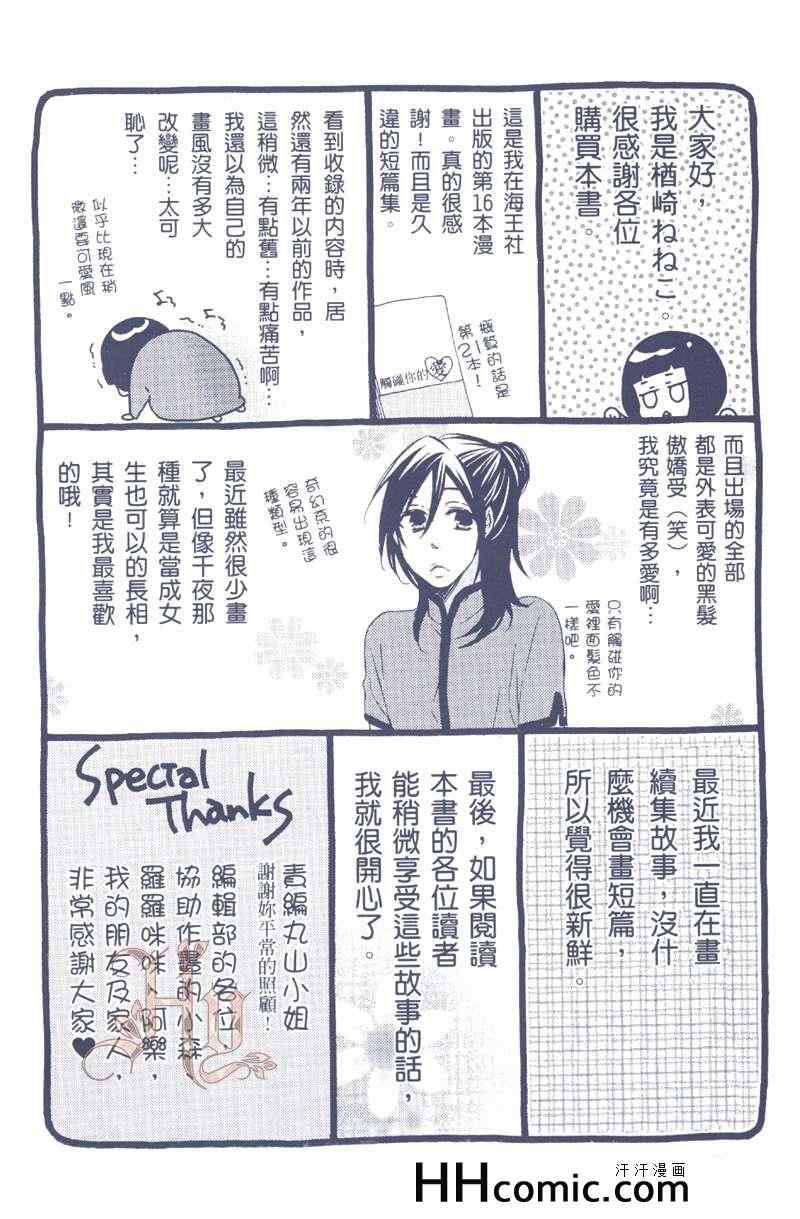 大家好，
我是楢崎ねねこ。
很感謝各位
購買本書。
這是我在海王社
出版的第16本漫
畫。真的很感
謝！而且是久
違的短篇集。
短篇的話是
第2本！
觸碰你的愛
看到收錄的內容時，居
然還有兩年以前的作品，
這稍微…有點舊…有點痛苦啊…
我還以為自己的
畫風沒有多大
改變呢…太可
恥了…
似乎比現在稍
微還要可愛風
一點。
而且出場的全部
都是外表可愛的黑髮
傲嬌受（笑），
我究竟是有多愛啊…
只有觸碰你的
愛裡面髮色不
一樣吧。
奇幻系的很
容易出現這
種類型。
最近雖然很少畫
了，但像千夜那
種就算是當成女
生也可以的長相，
其實是我最喜歡
的哦！
最近我一直在畫
續集故事，沒什
麼機會畫短篇，
所以覺得很新鮮。
最後，如果閱讀
本書的各位讀者
能稍微享受這些故事的話，
我就很開心了。
Special
Thanks
責編丸山小姐
謝謝妳平常的照顧！
編輯部的各位、
協助作畫的小森、
羅羅咪咪、阿樂、
我的朋友及家人，
非常感謝大家♥
汗汗漫画
HHcomic.com